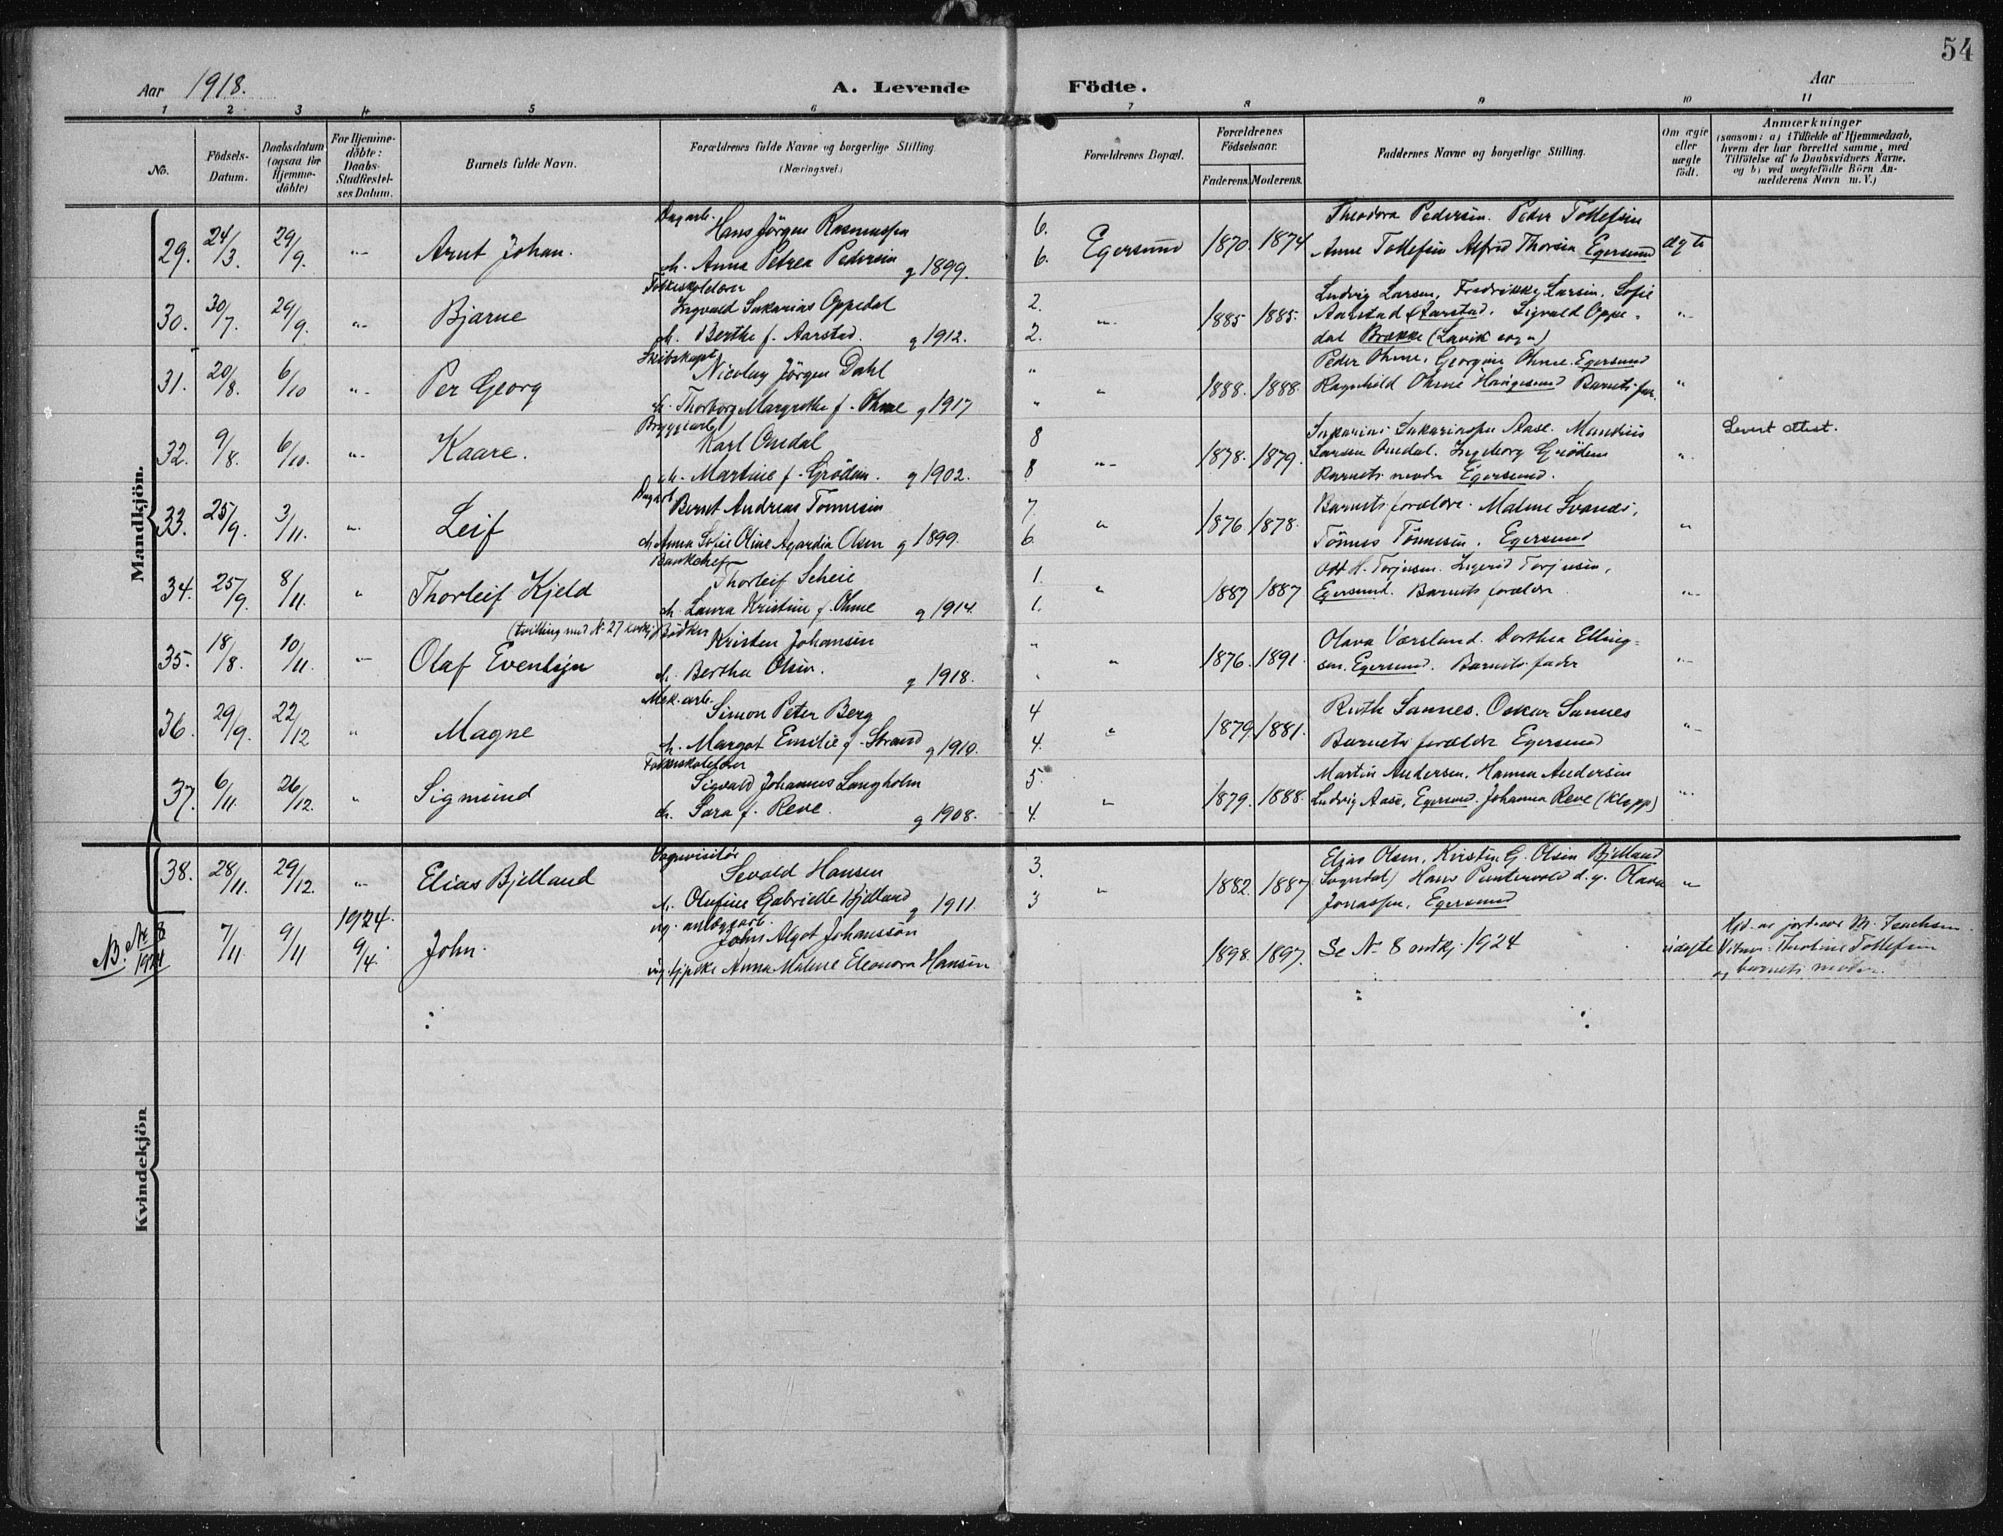 54
Aar 1918.
A. Levende Födte.
Aar
1 2 3 4 5 6 7 8 9 10 11
No.
Födsels-Datum.
Daabsdatum (ogsaa for Hjemme-döbte)
For Hjemme-döbte: Daabs-Stadfæstel-ses Datum.
Barnets fulde Navn.
Forældrenes fulde Navne og borgerlige Stilling. (Næringsvei.)
Forældrenes Bopæl.
Forældrenes Födselsaar.
Faderens. Moderens.
Faddernes Navne og borgerlige Stilling.
Om ægte eller uægte födt.
Anmærkninger
(saasom: a) i Tilfælde af Hjemmedaab,
hvem der har forrettet samme, med
Tilföielse af to Daabsvidners Navne.
og b) ved uægtefödte Börn An-
melderens Navn m. V.)
Mandkjön.
29. 24/3. 29/9. "- Arnt Johan.
Dagarb. Hans Jörgen Rasmussen
h. Anna Petrea Pedersen g 1899.
6. 6. Egersund 1870. 1874
Theodora Pedersen. Peder Tollefsen
Anne Tollefsen Alfred Thorsen Egersund
ægte
30. 30/7. 29/9. "- Bjarne
Folkeskolelærer Ingvald Sakarias Oppedal
h. Berthe f. Aarstad. g 1912.
2. 2. "- 1885. 1885.
Ludvig Larsen, Fredrikke Larsen. Sofie
Aarstad Aarstad. Sigvald Oppe-
dal Brække (Lavik sogn)
"-
31. 20/8. 6/10 "- Per Georg
Skibskapt. Nicolay Jörgen Dahl
h. Thorborg Margrethe f. Ohme g 1917
" " " 1888. 1888.
Peder Ohme, Georgine Ohme. Egersund
Ragnhild Ohme Haugesund Barnets far.
"
32. 9/8. 6/10. "- Kaare.
Bryggearb. Karl Omdal
h. Martine f. Grödem. g 1902.
8 8 "- 1878. 1879.
Sakarias Sakariassen Aase. Mandius
Larsen Omdal. Ingeborg Grödem
Barnets moder Egersund.
"
Levert attest.
33. 25/9. 3/11. "- Leif
Dagarb. Bernt Andreas Tönnesen
h. Anna Sofie Oline Agardia Olsen g 1899.
7. 6. " 1876. 1878.
Barnets forældre. Malene Svanes,
Tönnes Tönnesen. Egersund
"
34. 25/9. 8/11. " Thorleif Kjeld
Bankchef Thorleif Scheie
h. Laura Kristine f. Ohme g 1914.
1. 1. " 1887 1887
Ott H. Torjusen. Ingerid Torjusen,
Egersund. Barnets forældre.
"-
35. 18/8. 10/11. "- Olaf Evenlyn
(tvilling med No 27 kvkj)
Bödker Kristen Johansen
h. Bertha Olsen. g 1918.
" " " 1876. 1891.
Olava Værsland. Dorthea Elling-
sen. Egersund. Barnets fader
"-
36. 29/9. 22/12 " Magne
Mek. arb. Simon Peter Berg
h. Margot Emilie f. Strand g 1910.
4 4. " 1879. 1881.
Ruth Sannes. Oskar Sannes
Barnets forældre Egersund
"
37. 6/11. 26/12. " Sigmund
Folkeskolelærer Sigvald Johannes Langholm
h. Sara f. Reve. g 1908.
5. 4. " 1879. 1888.
Martin Andersen. Hanna Andersen
Ludvig Aase, Egersund. Johanna Reve (Klepp)
"-
38. 28/11. 29/12. "- Elias Bjelland
Sevald Hansen
h. Olufine Gabrielle Bjelland g 1911.
3. 3 " 1882. 1887.
Elias Olsen, Kirsten G. Olsen Bjelland
Sogndal) Hans Puntervold d.y. Olava
Jonassen, Egersund
"
NB. No 8 1924 7/11 9/11 1924. 9/4. John.
ug. anlægsarb. John Algot Johansson
ug. tjpike Anna Malene Eleonora Hansen
1898. 1897.
Se No 8 mdkj. 1924
uægte
Hjd. av jordmor M. Isachsen
Vitner: Thorine Tollefsen
og barnets moder.
Kvindekjön